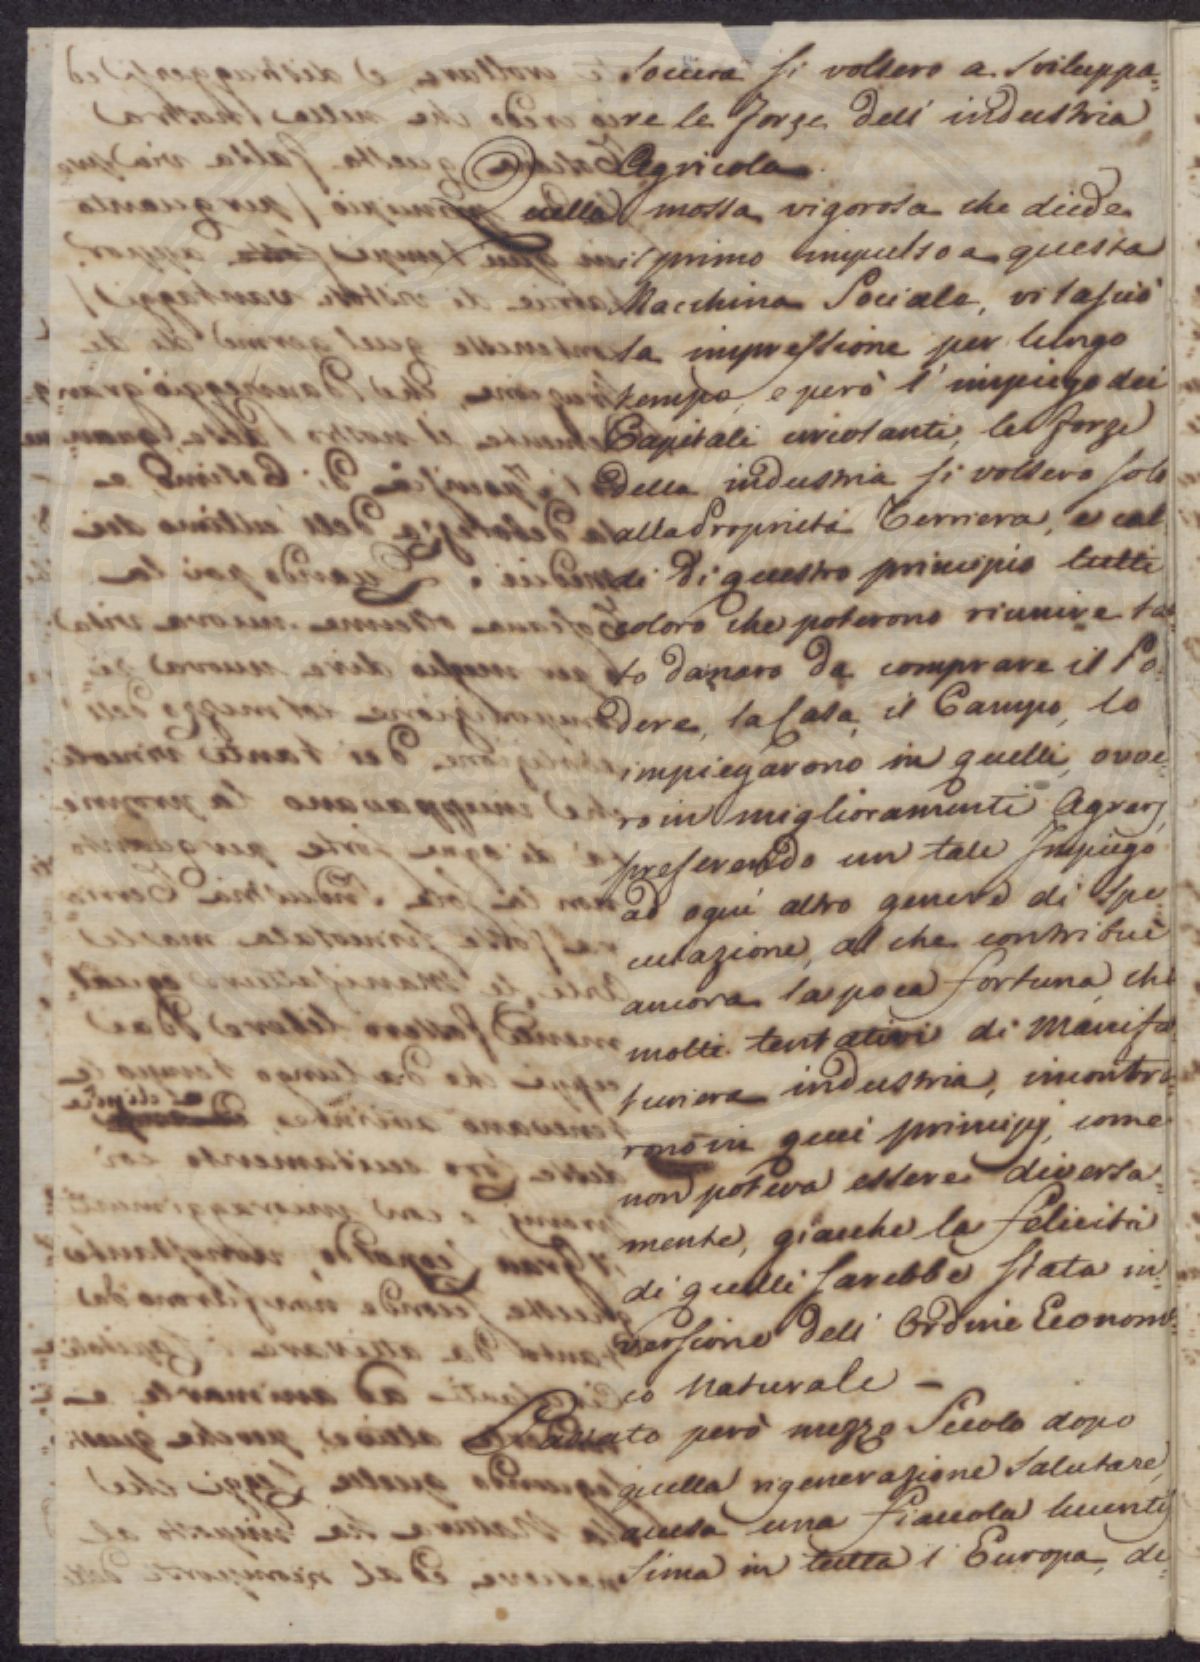 Socera si volsero a sviluppa=
re le forze dell' industria
Agricola.
Quella mossa vigorosa che diede
il primo impulso a questa
Macchina Sociale, vi lasciò
la impressione per lungo
tempo, e però l' impiego dei
Capitali circolanti, le forze
della industria si volsero solo
alla Proprietà Terriera, e cal
di di questo principio tutti
coloro che poterono riunire tan
to danaro da comprare il Po=
dere, la Casa, il Campo, lo
impiegarono in quelli, ovve=
ro in miglioramenti Agrarj,
preferendo un tale Impiego
ad ogni altro genere di spe
culazione, al che contribuì
ancora la poca fortuna, che
molti tentativi di Manifat
turiera industria, incontra=
rono in quei principj, come
non poteva essere diversa=
mente, giacchè la felicità
di quelli sarebbe stata in=
versione dell' Ordine Economi=
co Naturale —
Passato però mezzo Secolo dopo
quella rigenerazione salutare,
accesa una fiaccola lucentis
sima in tutta l' Europa, di=